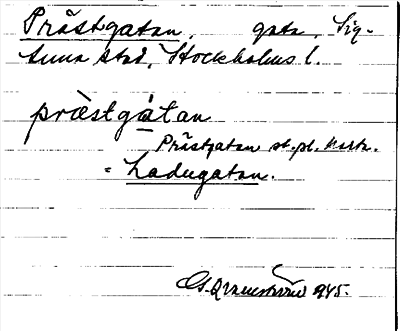 Prästgatan, gata, Sig-
tuna stad, Stockholms l.
prästgátan
Prästgatan st.pl. karta.
= Ladugatan.
1945.